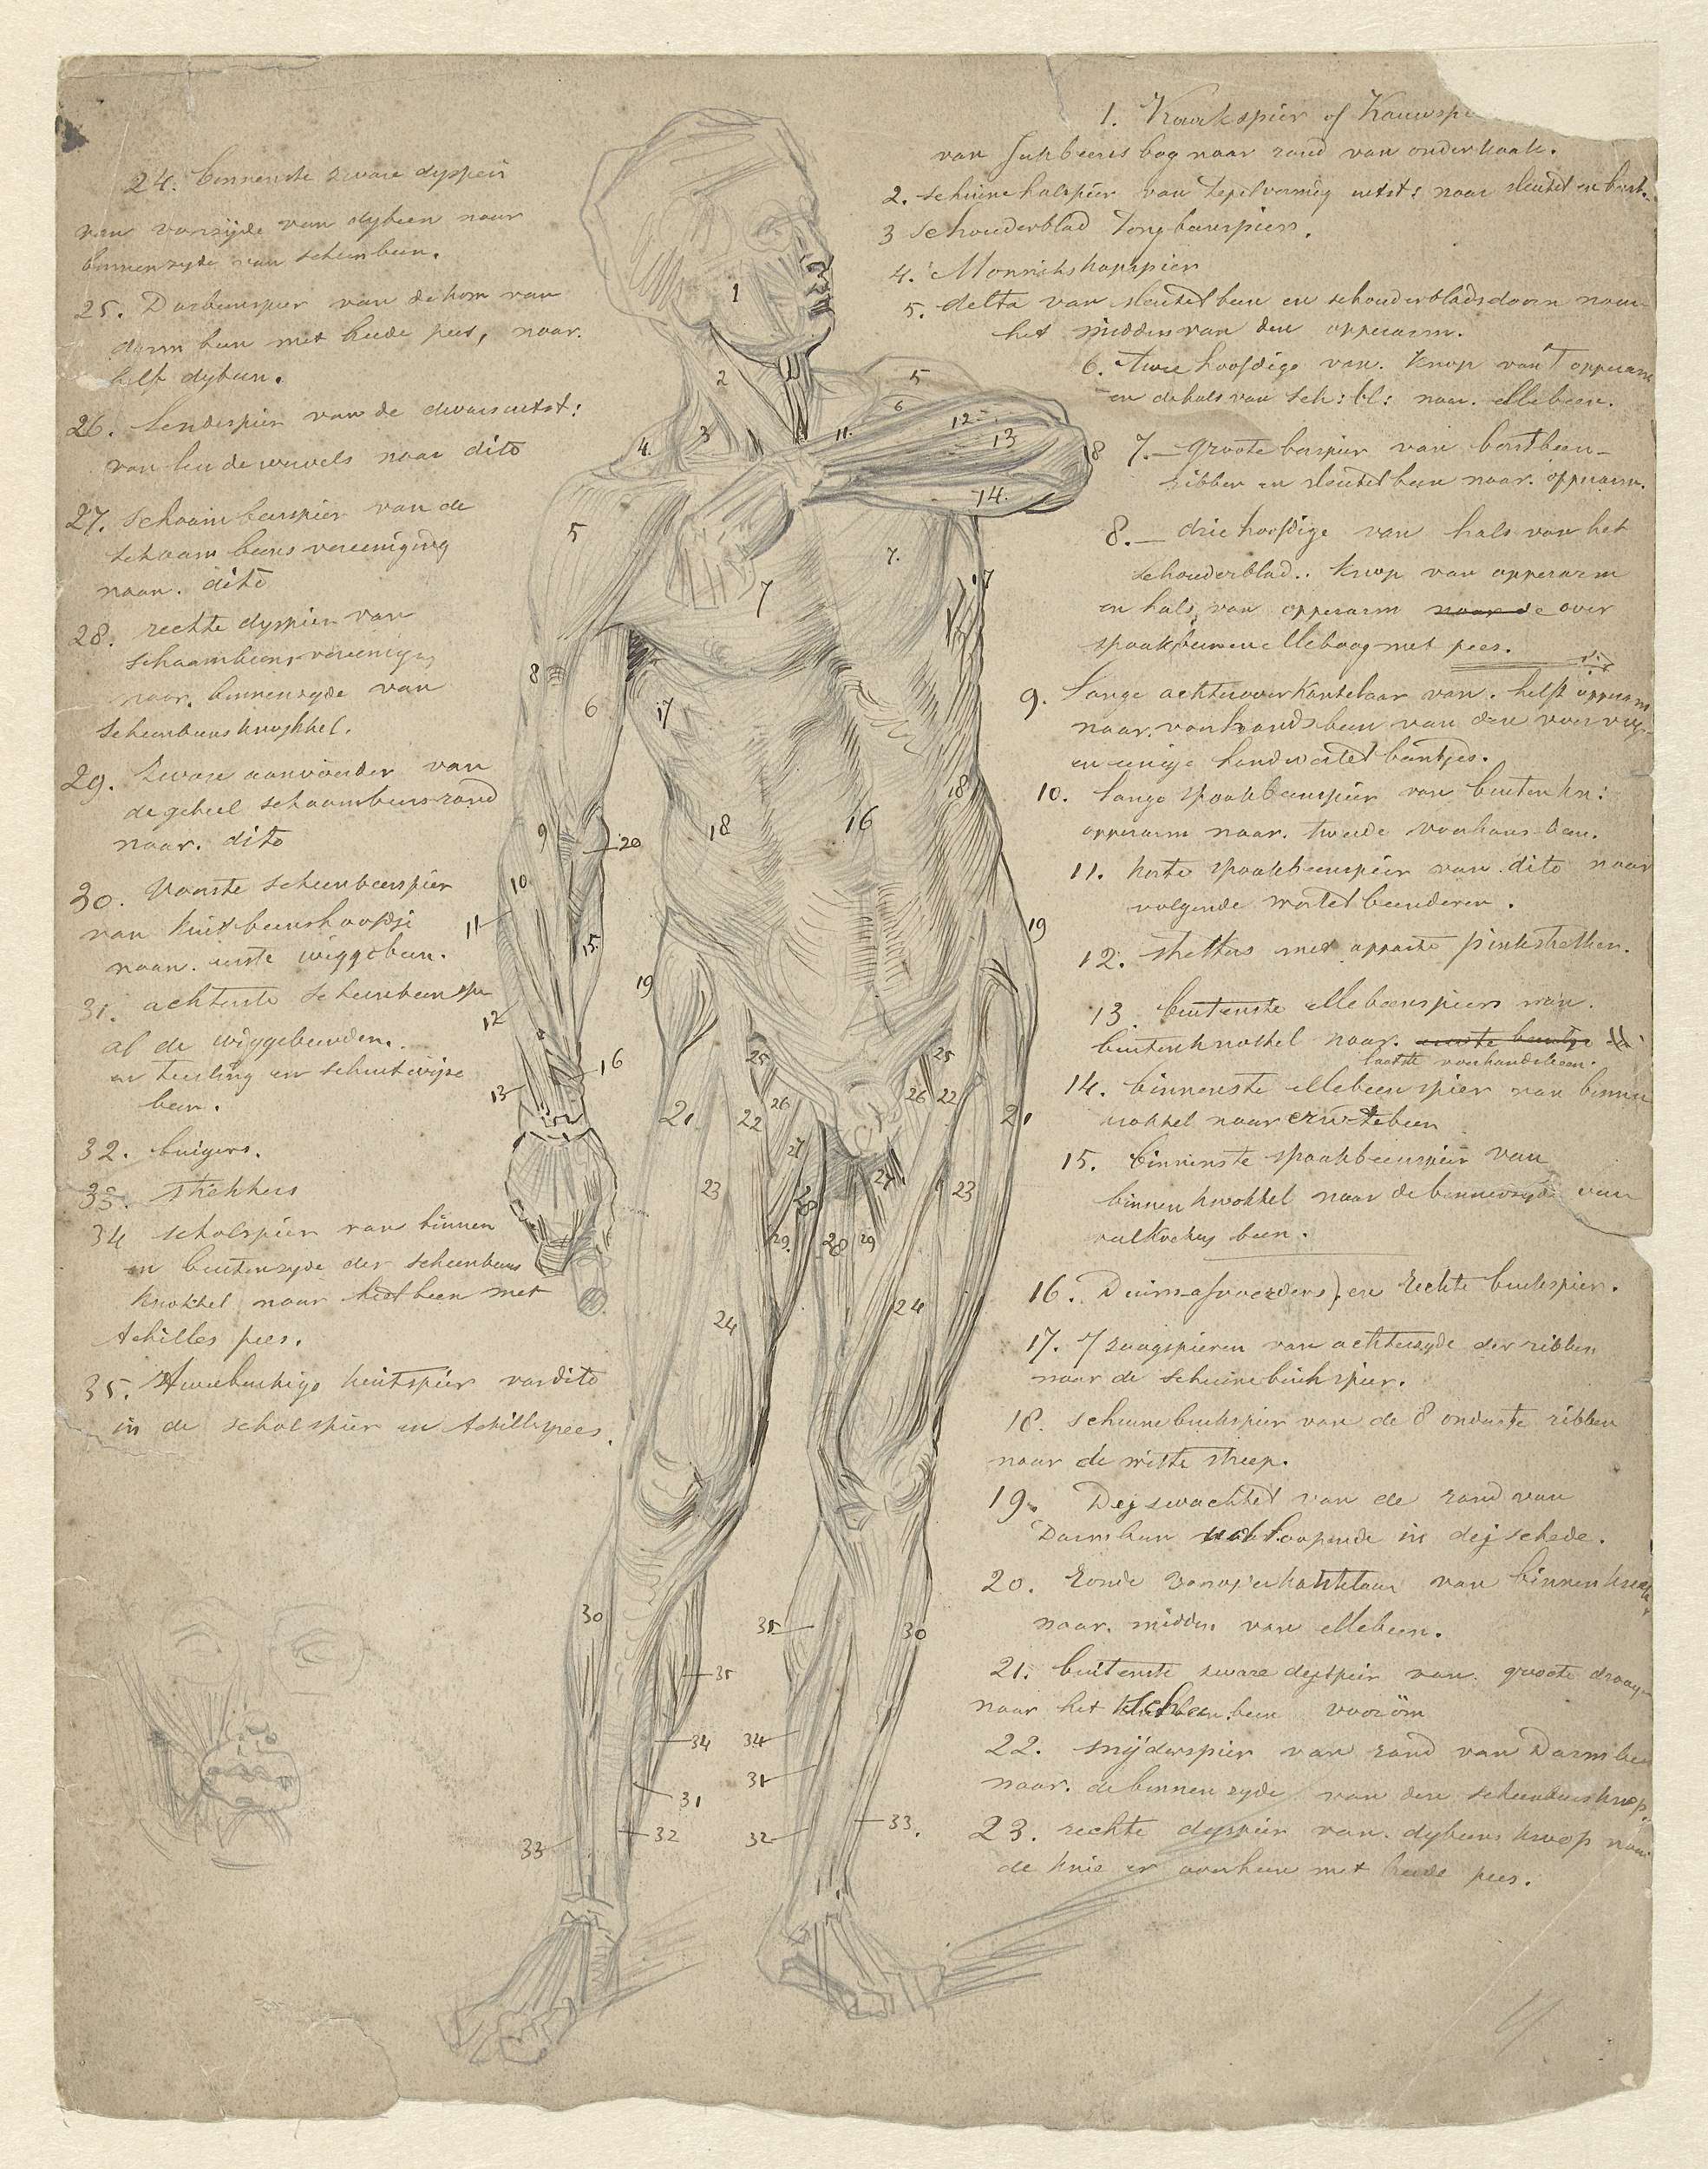 1. Kaakspier of Kauwspi
van Jukbeensboog naar rand van onderkaak.
2. schuine halspier van tepelvormig uitst: naar sleutel en borst.
3 schouderblad tongbeenspier.
4. Monnikskapspier
5. delta van sleutelbeen en schouderbladsdoorn naar
het midden van den opperarm.
6. twee hoofdige van. Knop van 't opperarm
en de hals van sch: bl: naar. ellebeen.
7. groote borspier van borstbeen-
ribben en sleutelbeen naar. opperarm.
8. drie hoofdige van hals van het
schouderblad.. knop van opperarm
en hals van opperarm naar de over
spaakbeen en elleboog met pees.
9. Lange achteroverkantelaar van. helft opperarm
naar. voorhandsbeen van den voorving.
en eenige handwortel beentjes.
10. lange spaakbeenspier van buitenkn:
opperarm naar. tweede voorhands been.
11. korte spaakbeenspier van dito naar
volgende wortelbeenderen.
12. strekkers met apparte pinkstrekker.
13. buitenste ellebeenspiers van.
buitenknokkel naar. eerste beentje
laatste voorhandsbeen.
14. binnenste ellebeenspier van binnen
knokkel naar erwtebeen
15. binnenste spaakbeenspier van
binnen knokkel naar de binnenzyde van
been.
16. Duim-afvoerders, en rechte buikspier.
17. 7 zaagspieren van achterzyde der ribben
naar de schuine buikspier.
18. schuine buikspier van de 8 onderste ribben
naar de witte streep.
19. Dejswachtel van de rand van
Darmbeen loopende in dejschede.
20. Ronde van binnenknokk
naar. midden van ellebeen.
21. buitenste zware dejspeir van. groote draay-
naar het been voorom
22. snijderspier van rand van Darmbeen
naar. de binnenzyde van den scheenbeensknop.
23. rechte dyspier van. dybeens knop naar
de knie er overheen met breede pees.
24. binnenste zware dyspeir
van voorzyde van dybeen naar
binnenzyde van scheenbeen.
25. Darbeenspier van de kom van
darmbeen met breede pees, naar.
helft dybeen.
26. Lendespier van de dwarsuitst:
van lendewervels naar dito
27. Schaambeenspier van de
schaambeens vereeniging
naar. dito
28. rechte dyspier van
schaambeens-vereeniging
naar. binnenzyde van
scheenbeensknokkel.
29. Zware aanvoerder van
de geheel schaambeensrand
naar. dito
30. Voorste scheenbeenspier
van kuitbeenshoofdje
naar. eerste wiggebeen.
31. achterste scheenbeenspr
al de wiggebeenderen.
en teerling en schuitwijze
been.
32. buigers.
33. strekkers
34 scholspier van binnen
en buitenzyde der scheenbeens
knokkel naar hielbeen met
Achilles pees.
35. tweebuikige kuitspier van dito
in de scholspier en Achillespees.
1
2
3
4.
5
5
6
11.
12
13
14.
8
7
7.
17
8
6
17
18
16
18
9
20
10
11
15.
12
16
13
19
19
25
25
26
22
26
22
21
21
27
27
23
23
28
28
29.
29
24
24
30
30
35
35
34
34
31
31
32
32
33
33.